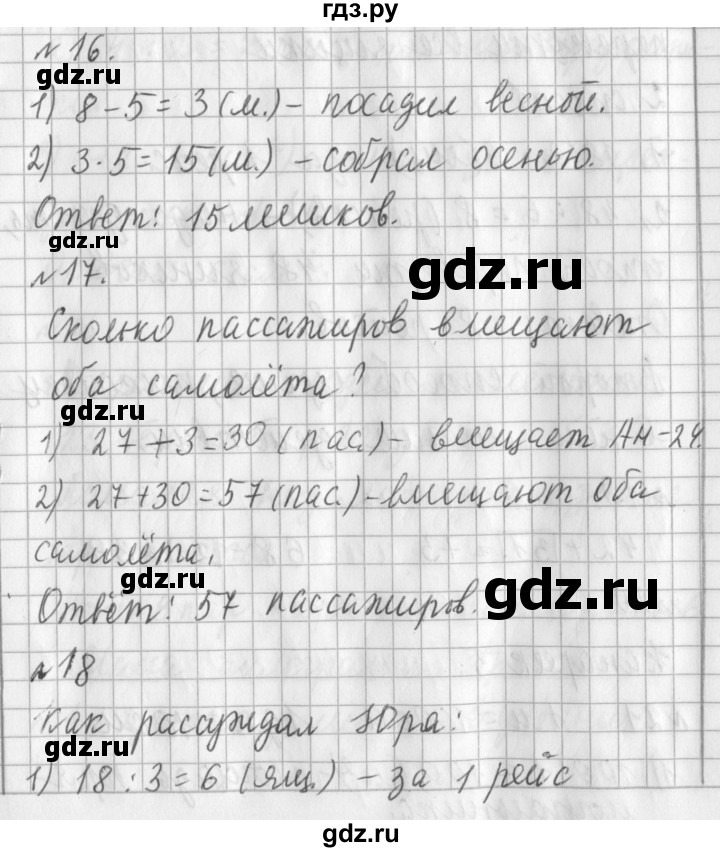 гдз.ру
№16.
gdz.ru
1) 8-5=3(м.)- посадил весной.
2) 3·5=15(м.) -собрал осенью.
gdz.ru
Ответ: 15 мешков.
gdz.ru
№17.
gdz.ru
Сколько пассажиров вмещают
оба самолёта?
gdz.ru
1) 27+3=30(пас.)- вмещает Ан-24.
gdz.ru
2) 27+30=57(пас.)-вмещают оба
самолёта.
gdz.ru
Ответ: 57 пассажиров.
gdz.ru
№18
Как рассуждал Юра:
gdz.ru
1) 18:3=6 (ящ.) - за 1 рейс
gdz.ru